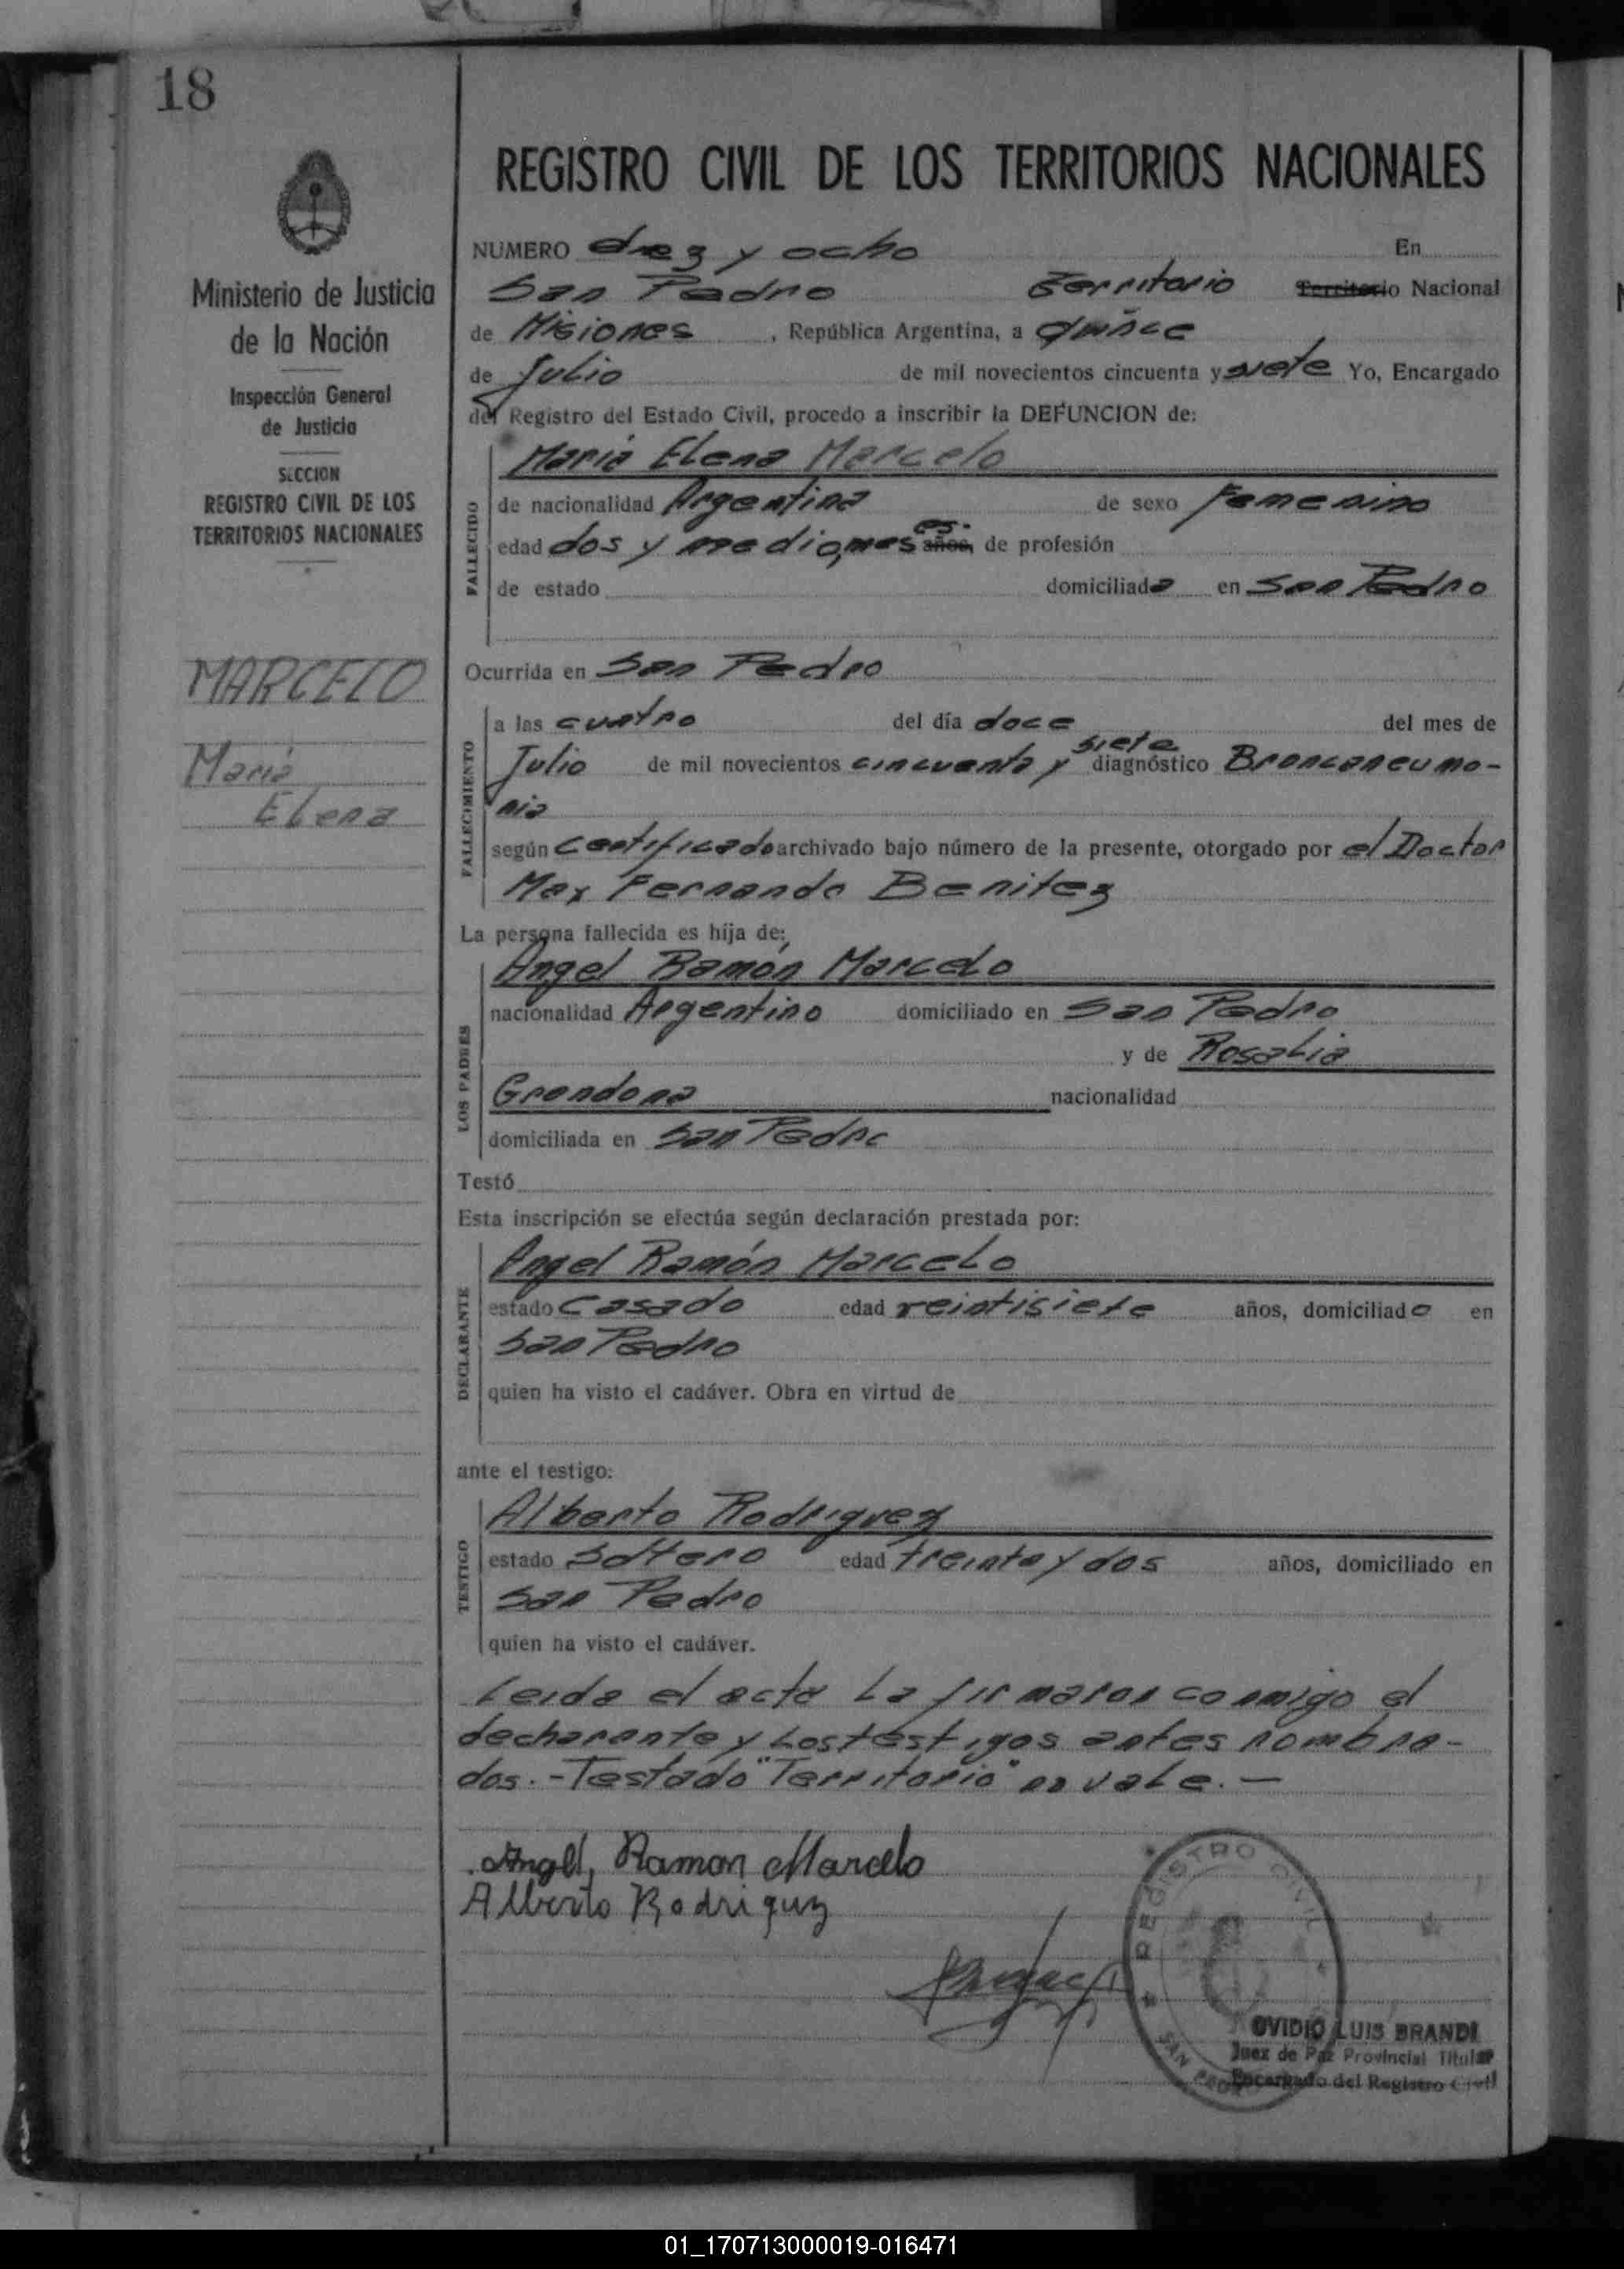 18
REGISTRO CIVIL DE LOS TERRITORIOS NACIONALES
Ministerio de Justicia
de la Nación
Inspección General
de Justicia
SECCION
REGISTRO CIVIL DE LOS
TERRITORIOS NACIONALES
MARCELO
Maria
Elena
NUMERO diez y ocho En
San Pedro Territorio Territorio Nacional
de Misiones, República Argentina, a quince
de Julio de mil novecientos cincuenta y siete Yo, Encargado
del Registro del Estado Civil, procedo a inscribir la DEFUNCION de:
Maria Elena Marcelo
FALLECIDO
de nacionalidad Argentina de sexo Femenino
edad dos y medio, meses. años, de profesión
de estado domiciliada en San Pedro
Ocurrida en San Pedro
FALLECIMIENTO
a las cuatro del día doce del mes de
Julio de mil novecientos cincuenta y siete diagnóstico Bronconeumo-
nia
según certificado archivado bajo número de la presente, otorgado por el Doctor
Max Fernando Benitez
La persona fallecida es hija de:
LOS PADRES
Angel Ramón Marcelo
nacionalidad Argentino domiciliado en San Pedro
y de Rosalia
Grondona nacionalidad
domiciliada en San Pedro
Testó
Esta inscripción se efectúa según declaración prestada por:
DECLARANTE
Angel Ramón Marcelo
estado casado edad veintisiete años, domiciliado en
San Pedro
quien ha visto el cadáver. Obra en virtud de
ante el testigo:
TESTIGO
Alberto Rodriguez
estado Soltero edad treinta y dos años, domiciliado en
San Pedro
quien ha visto el cadáver.
Leida el acta La firmaron conmigo el
declarante y Los testigos antes nombra-
dos.- Testado "Territorio" no vale.—
Angel, Ramon Marcelo
Alberto Rodriguz
REGISTRO CIVIL
SAN PEDRO
OVIDIO LUIS BRANDI
Juez de Paz Provincial Titular
Encargado del Registro Civil
01_170713000019-016471